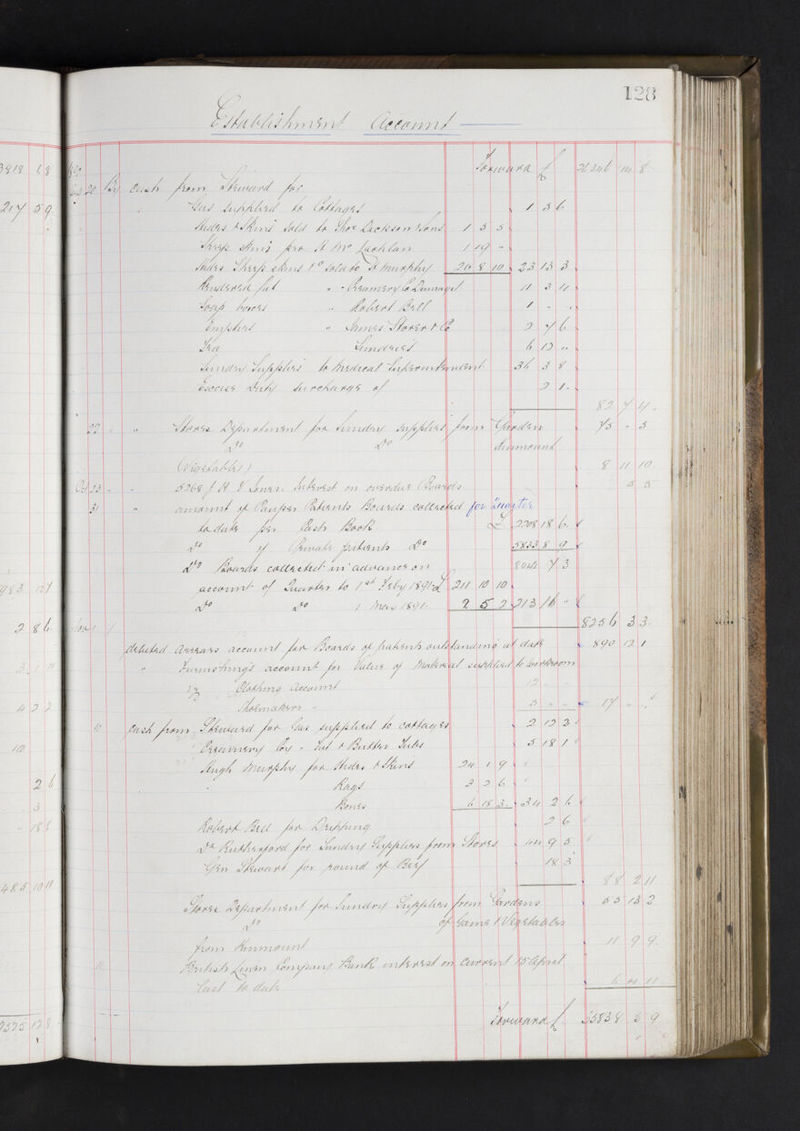 128
Establishment Account
Forward £
By Cash from Steward for
Gas supplied to Cottages 1 3 6
Hides & Skins sold to Thos Jackson & Sons 1 5 5
Sheep Skins pro Mc Lachlan 1 19 -
Hides Sheep skins sold to Murphy 20 8 10 23 13 3
Rendered fat " Creamery Co 11 3 11
Soap boxes " Robert Bell 1 - -
Empties " James Storer & Co 2 7 6
Tea Sundries 6 12 "
Sundry Supplies to Medical Superintendent 36 3 8
Excise Duty surcharge of 2 1 -
82 7 11
22 " " Stores Department for Sundry Supplies from Garden 73 - 3
Do Do Kinmount
(Vegetables) 8 11 10
Oct 23 - - Interest on overdue Boards 5 5
31 " amount of Pauper Patients Boards collected for Quarter
to date per Cash Book £ 2208 18 6
Do of Private patients Do 5833 8 9
8042 7 3
Do Boards collected in advance on
account of Quarter to 1st Feby 1891 £ 211 10 10
Do Do 1 May 1891 2 5 2 213 16 -
8256 3 3
arrears account for Boards of patients outstanding at date 890 12 1
" Furnishings account for Value of Material supplied to workroom
Clothing Account 12 - -
Shoemakers " 5 - - 17 - -
Cash from Steward for Gas supplied to cottages 2 12 3
Creamery Coy - Fat & Butter Tubs 5 18 1
Hugh Murphy for Hides & Skins 24 1 9
Rags 3 2 6
Bones 6 18 3 34 2 6
Robert Bell for Dripping 2 6
Dr Rutherford for Sundry Supplies from Stores 44 9 5
Gen Steward for pound of Beef 18 3
88 2 11
Stores Department for Sundry Supplies from Gardens 53 13 2
Do of Game & Vegetables
from Kinmount 11 9 9
British Linen Company Bank interest on Current 15 April
last to date 6 4 11
Forward £ 35838 5 9